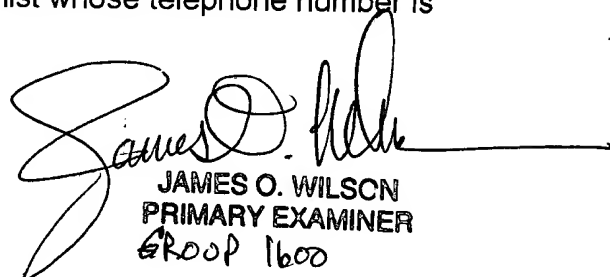 nist whose telephone number is
James O. Wilson
JAMES O. WILSON
PRIMARY EXAMINER
GROUP 1600